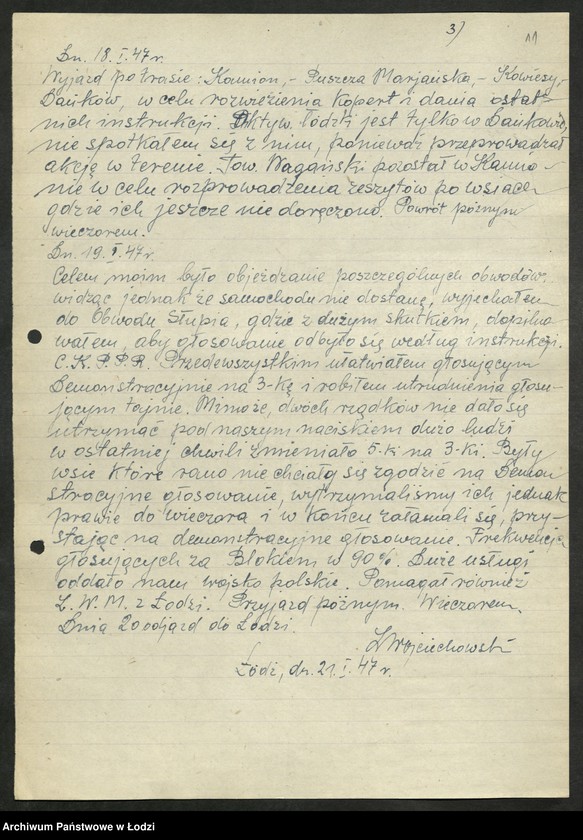 3)
11
Dn. 18.I.47r.
Wyjazd po trasie: Kamion, - Puszcza Marjańska, - Kowiesy, -
Dańków, w celu rozwiezienia kopert i dania ostat-
nich instrukcji. Aktyw. łódzki jest tylko w Dańkowie,
nie spotkałem się z nim, ponieważ przeprowadzał
akcję w terenie. Tow. Wagański pozostał w Kamio-
nie w celu rozprowadzenia zeszytów po wsiach
gdzie ich jeszcze nie doręczono. Powrót późnym
wieczorem.
Dn. 19.I.47r.
Celem moim było objeżdzanie poszczególnych obwodów.
widząc jednak że samochodu nie dostanę, wyjechałem
do Obwodu Słupia, gdzie z dużym skutkiem, dopilno-
wałem, aby głosowanie odbyło się według instrukcji.
C.K.P.P.R. Przedewszystkim ułatwiałem głosującym
Demonstracyjnie na 3-kę i robiłem utrudnienia głosu-
jącym tajnie. Mimoże, dwóch rządków nie dało się
utrzymać pod naszym naciskiem dużo ludzi
w ostatniej chwili zmieniało 5-k na 3-ki. Były
wsie które rano nie chciały się zgodzić na Demon
stracyjne głosowanie, wytrzymaliśmy ich jednak
prawie do wieczora i w końcu załamali się, przy-
stając na demonstracyjne głosowanie. Frekwencja
głosujących za Blokiem w 90%. Duże usługi
oddało nam wojsko polskie. Pomagał również
Z.W.M. z Łodzi. Przyjazd późnym. Wieczorem.
Dnia 20 odjazd do Łodzi.
Wojciechowski
Łódź, dn. 21.I.47r.
Archiwum Państwowe w Łodzi